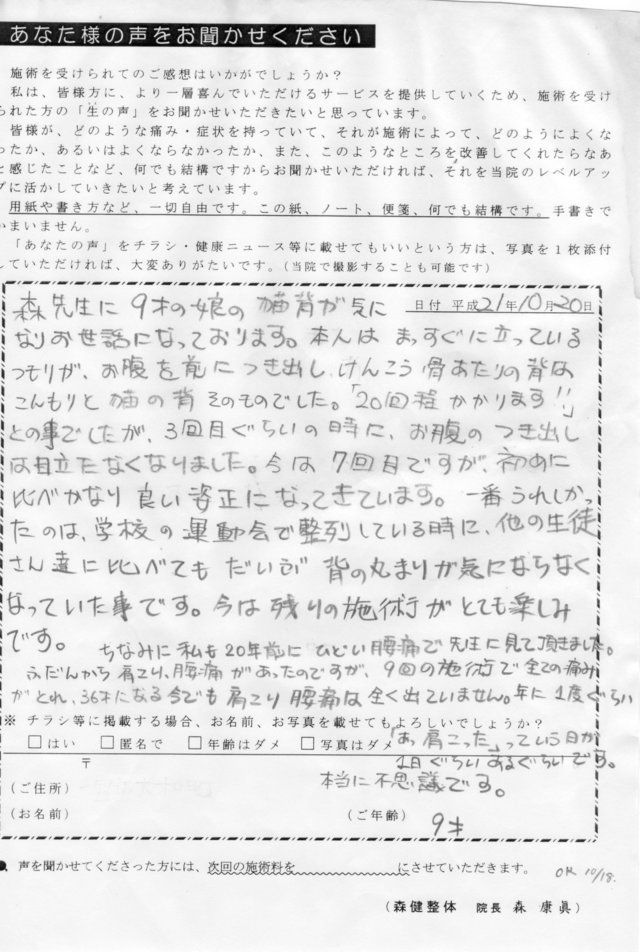 あなた様の声をお聞かせください
施術を受けられてのご感想はいかがでしょうか？
私は、皆様方に、より一層喜んでいただけるサービスを提供していくため、施術を受け
られた方の「生の声」をお聞かせいただきたいと思っています。
皆様が、どのような痛み・症状を持っていて、それが施術によって、どのようによくな
ったか、あるいはよくならなかったか、また、このようなところを改善してくれたらなあ
と感じたことなど、何でも結構ですからお聞かせいただければ、それを当院のレベルアッ
プに活かしていきたいと考えています。
用紙や書き方など、一切自由です。この紙、ノート、便箋、何でも結構です。手書きで
いまいません。
「あなたの声」をチラシ・健康ニュース等に載せてもいいという方は、写真を１枚添付
していただければ、大変ありがたいです。(当院で撮影することも可能です)
日付 平成21年10月20日
森先生に9才の娘の猫背が気に
なりお世話になっております。本人はまっすぐに立っている
つもりが、お腹を前につき出し、けんこう骨あたりの背は
こんもりと猫の背そのものでした。「20回程かかります!!」
との事でしたが、3回目ぐらいの時に、お腹のつき出し
は目立たなくなりました。今は7回目ですが、初めに
比べかなり良い姿正になってきています。一番うれしかっ
たのは、学校の運動会で整列している時に、他の生徒
さん達に比べてもだいぶ背の丸まりが気にならなく
なっていた事です。今は残りの施術がとても楽しみ
です。
ちなみに私も20年前にひどい腰痛で先生に見て頂きました。
ふだんから肩こり、腰痛があったのですが、9回の施術で全ての痛み
がとれ、36才になる今でも肩こり腰痛は全く出ていません。年に1度ぐらい
「あっ肩こった」っていう日が
1日ぐらいあるぐらいです。
本当に不思議です。
※ チラシ等に掲載する場合、お名前、お写真を載せてもよろしいでしょうか？
□はい □匿名で □年齢はダメ □写真はダメ
〒
(ご住所)
(お名前) (ご年齢)
9才
● 声を聞かせてくださった方には、次回の施術料を にさせていただきます。
OK 10/18.
(森健整体 院長 森 康眞)